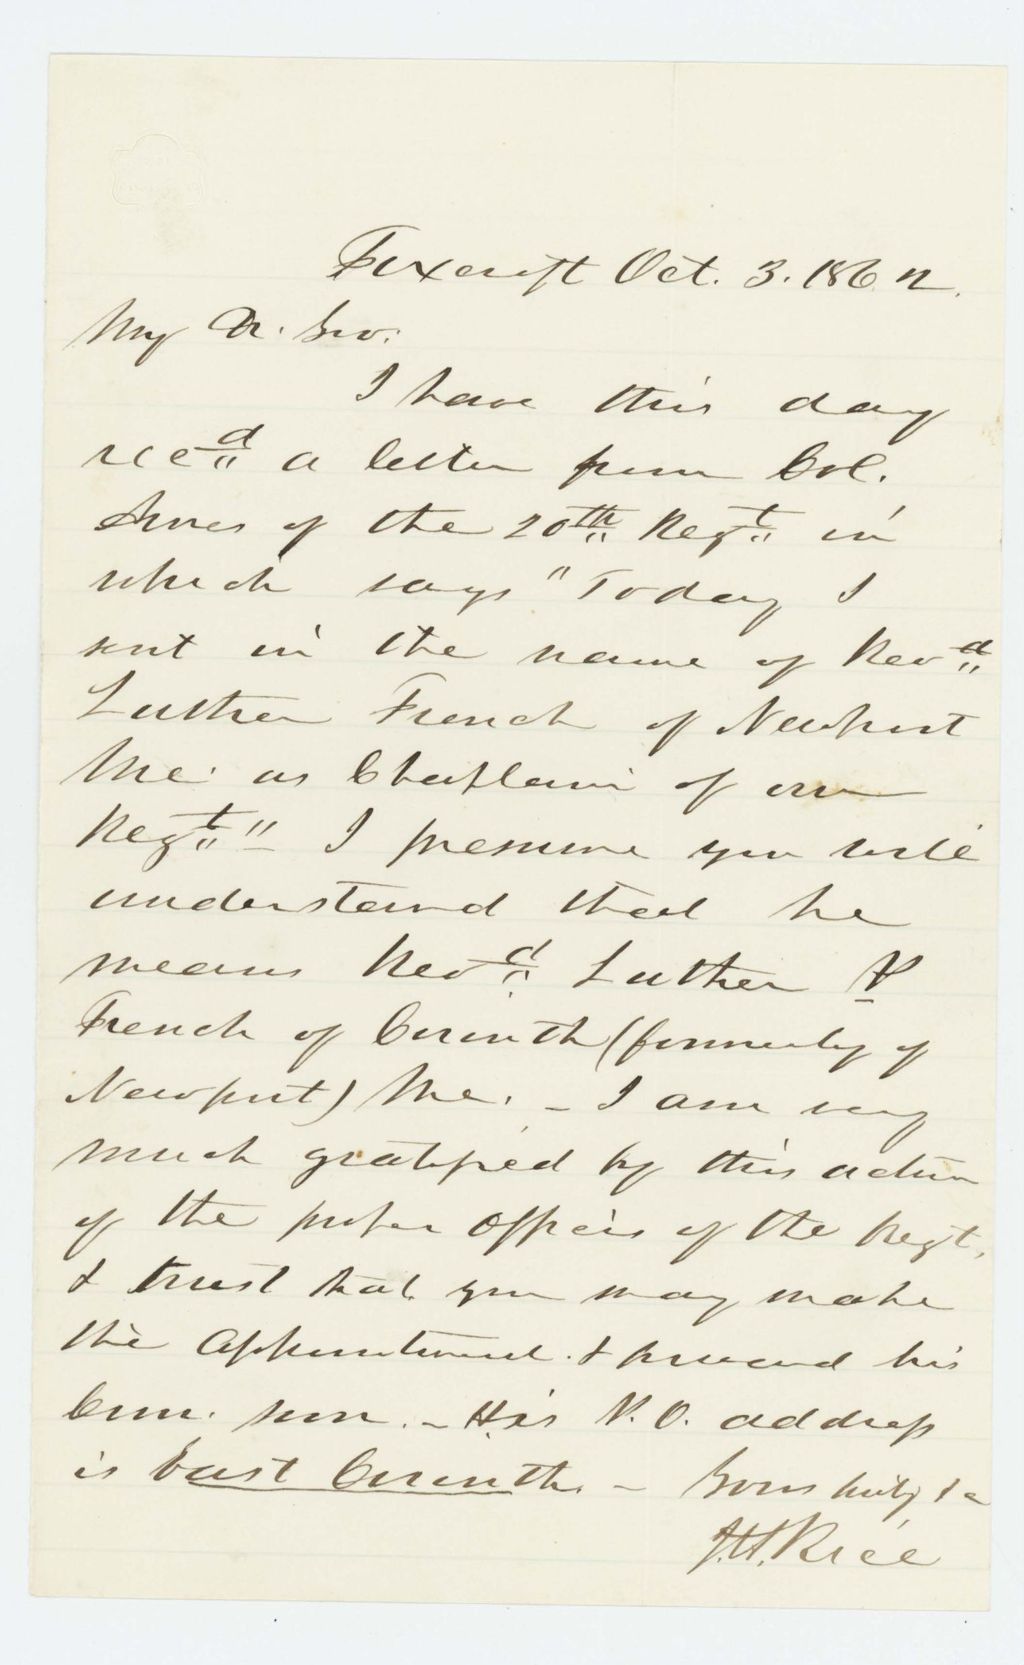 Foxcroft Oct. 3. 1862.
My Dr. Gov:
I have this day
recd a letter from Col.
Ames of the 20th Regt in
which says "Today I
sent in the name of Revd
Luther French of Newport
Me. as Chaplain of our
Regt" I presume you will
understand that he
means Revd Luther P
French of Corinth (formerly of
Newport) Me. - I am very
much gratified by this action
of the proper officers of the Regt.
& trust that you may make
the appointment. & forward his
Com. soon. - His P.O. address
is East Corinth. - Yours truly &c
J.H. Rice